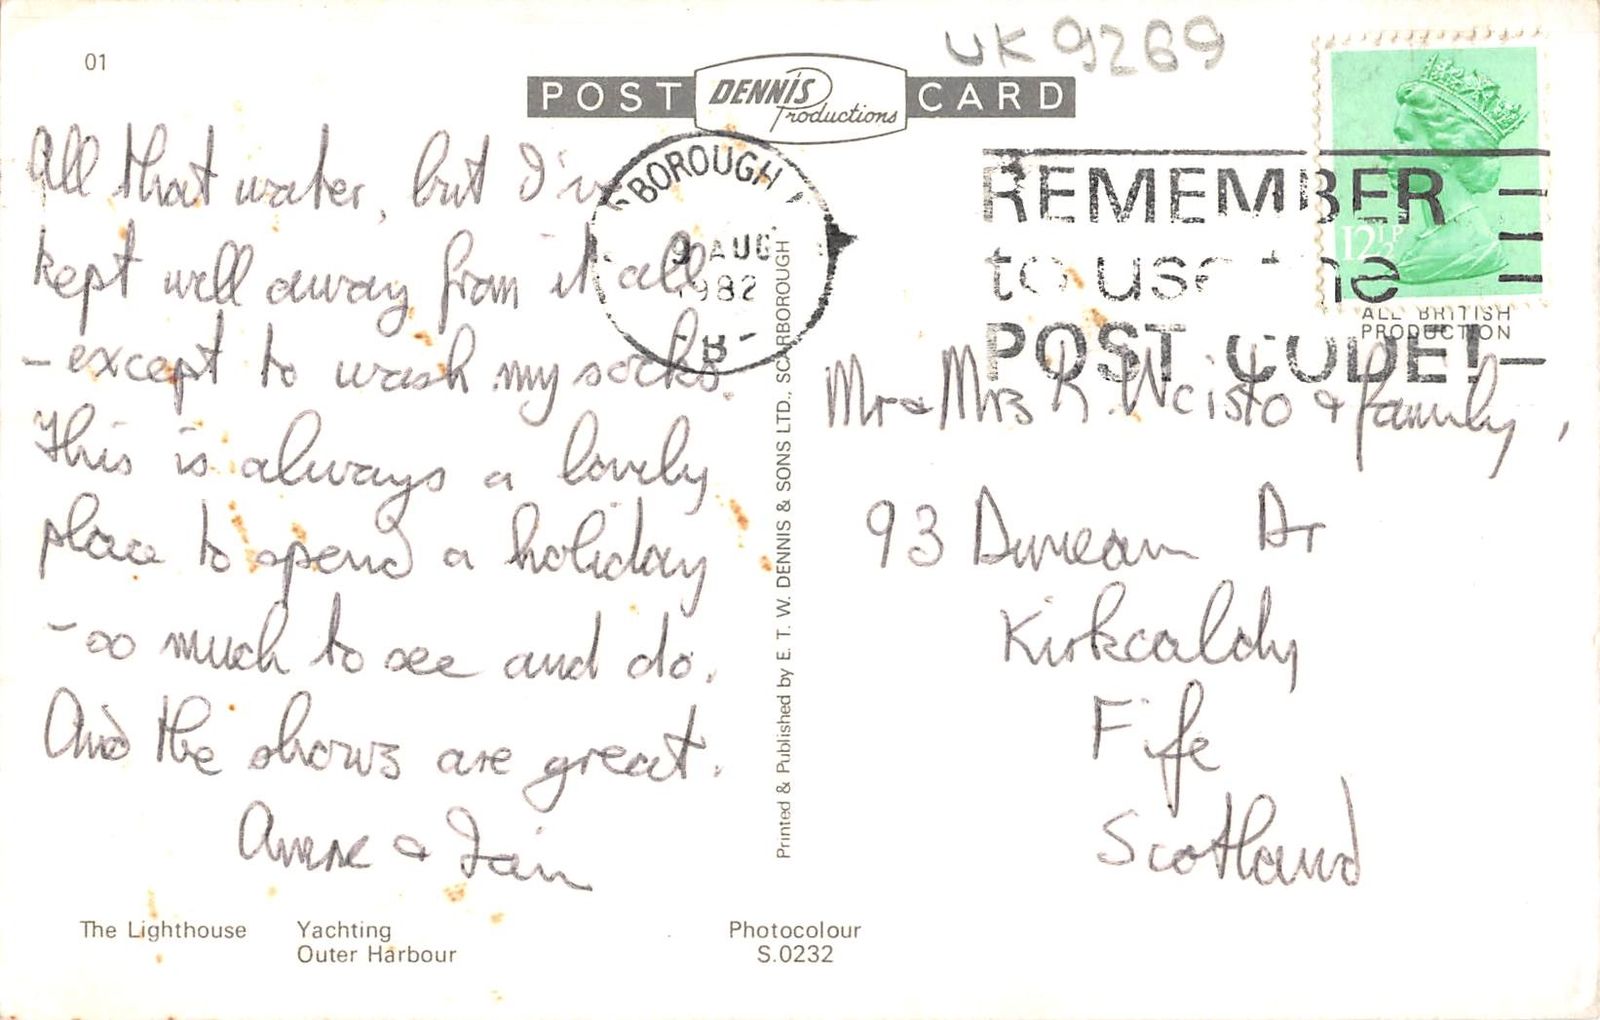 01
UK 9269
POST DENNIS Productions CARD
BOROUGH
9 AUG
1982
B
REMEMBER
to use the
POST CODE!
12½P
ALL BRITISH
PRODUCTION
All that water, but I've
kept well away from it all
- except to wash my socks.
This is always a lovely
place to spend a holiday
- so much to see and do.
And the shows are great.
Anne & Iain
Printed & Published by E. T. W. DENNIS & SONS LTD., SCARBOROUGH
Mr & Mrs & family,
93 Duncan Dr
Kirkcaldy
Fife
Scotland
The Lighthouse
Yachting
Outer Harbour
Photocolour
S.0232